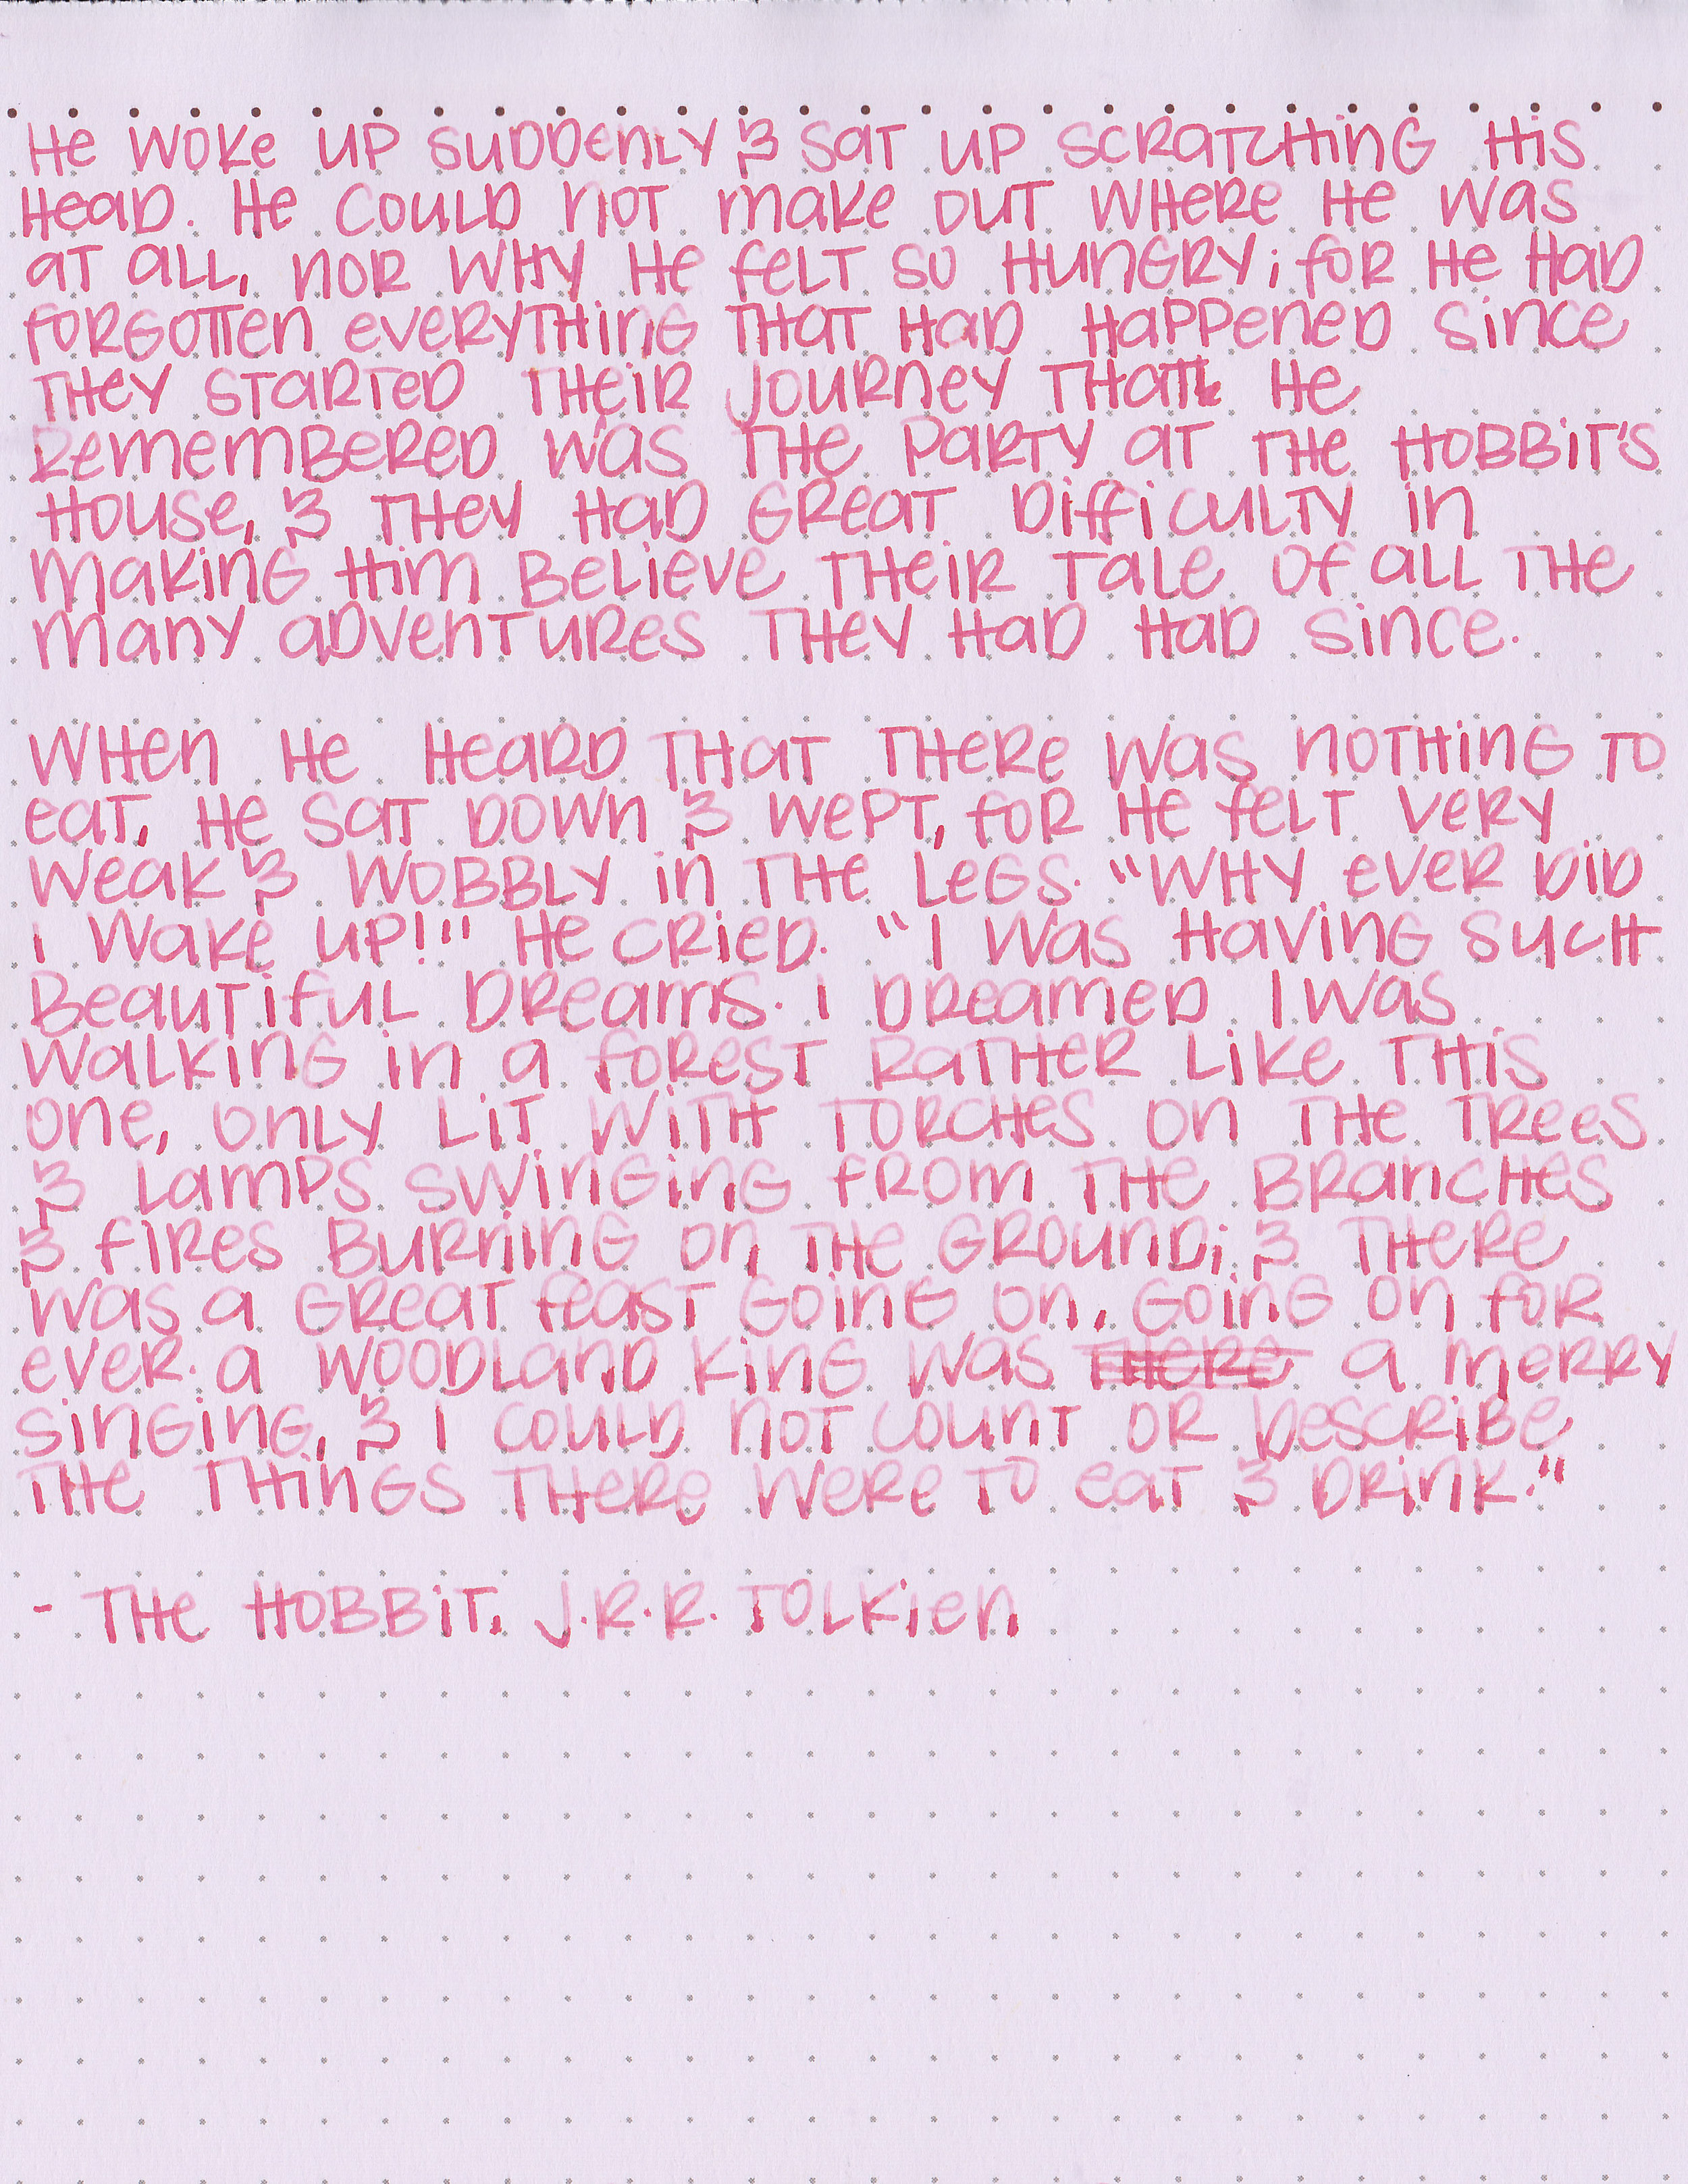 He woke up suddenly & sat up scratching his
head. He could not make out where he was
at all, nor why he felt so hungry; for he had
forgotten everything that had happened since
they started their journey that he
remembered was the party at the hobbit's
house, & they had great difficulty in
making him believe their tale of all the
many adventures they had had since.
When he heard that there was nothing to
eat, he sat down & wept, for he felt very
weak & wobbly in the legs. "Why ever did
I wake up!" he cried. "I was having such
beautiful dreams. I dreamed I was
walking in a forest rather like this
one, only lit with torches on the trees
& lamps swinging from the branches
& fires burning on the ground; & there
was a great feast going on, going on for
ever. A woodland king was there a merry
singing, & I could not count or describe
the things there were to eat & drink."
- The Hobbit, J.R.R. Tolkien